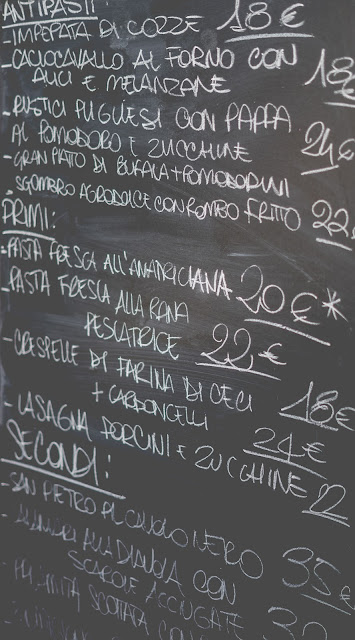 ANTIPASTI:
-IMPEPATA DI COZZE 18€
-CACIOCAVALLO AL FORNO CON
ALICI E MELANZANE 18€
-RUSTICI PUGLIESI CON PAPPA
AL POMODORO E ZUCCHINE 24€
-GRAN PIATTO DI BUFALA+POMODORINI
-SGOMBRO AGRODOLCE CON POMEO FRITTO 22
PRIMI:
-PASTA FRESCA ALL'AMATRICIANA 20€*
-PASTA FRESCA ALLA RANA
PESCATRICE 22€
-CRESPELLE DI FARINA DI CECI
+ CARDONCELLI 18€
-LASAGNA PORCINI E ZUCCHINE 24€ 22
SECONDI:
-SAN PIETRO AL CAVOLO NERO 35€
ALLA DIAVOLA CON
SCAROLE ACCIUGATE 30
SCOTTATA CON